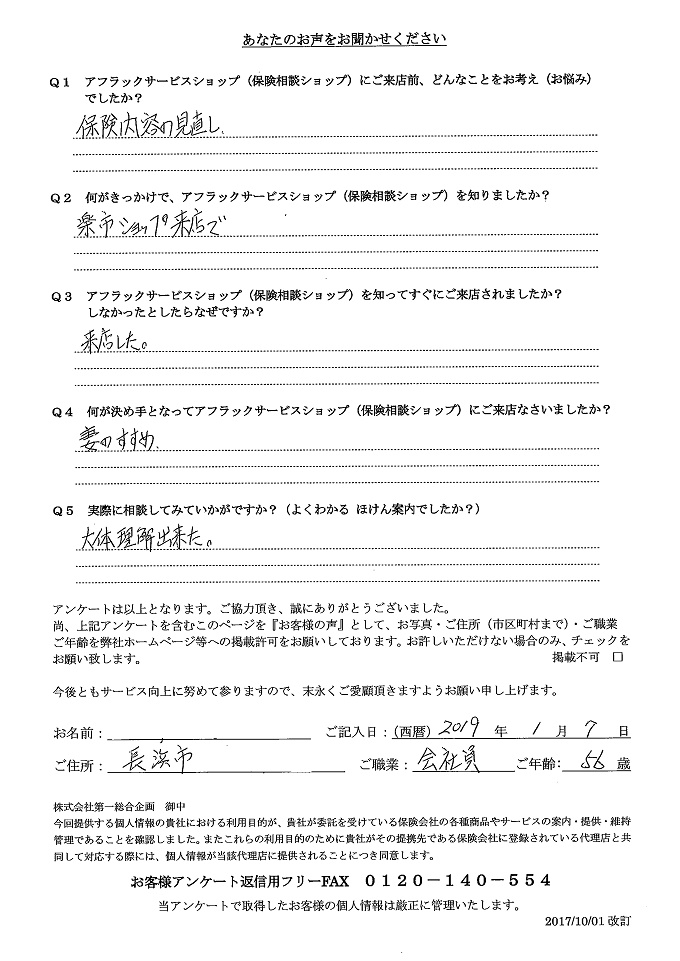 あなたのお声をお聞かせください
Q1 アフラックサービスショップ（保険相談ショップ）にご来店前、どんなことをお考え（お悩み）
でしたか？
保険内容の見直し、
Q2 何がきっかけで、アフラックサービスショップ（保険相談ショップ）を知りましたか？
楽市ショップ来店で
Q3 アフラックサービスショップ（保険相談ショップ）を知ってすぐにご来店されましたか？
しなかったとしたらなぜですか？
来店した。
Q4 何が決め手となってアフラックサービスショップ（保険相談ショップ）にご来店なさいましたか？
妻のすすめ、
Q5 実際に相談してみていかがですか？（よくわかる ほけん案内でしたか？）
大体理解出来た。
アンケートは以上となります。ご協力頂き、誠にありがとうございました。
尚、上記アンケートを含むこのページを『お客様の声』として、お写真・ご住所（市区町村まで）・ご職業
ご年齢を弊社ホームページ等への掲載許可をお願いしております。お許しいただけない場合のみ、チェックを
お願い致します。 掲載不可 □
今後ともサービス向上に努めて参りますので、末永くご愛顧頂きますようお願い申し上げます。
お名前： ご記入日：（西暦）2019 年 1 月 7 日
ご住所： 長浜市 ご職業： 会社員 ご年齢： 56 歳
株式会社第一総合企画 御中
今回提供する個人情報の貴社における利用目的が、貴社が委託を受けている保険会社の各種商品やサービスの案内・提供・維持
管理であることを確認しました。またこれらの利用目的のために貴社がその提携先である保険会社に登録されている代理店と共
同して対応する際には、個人情報が当該代理店に提供されることにつき同意します。
お客様アンケート返信用フリーFAX 0120－140－554
当アンケートで取得したお客様の個人情報は厳正に管理いたします。
2017/10/01 改訂